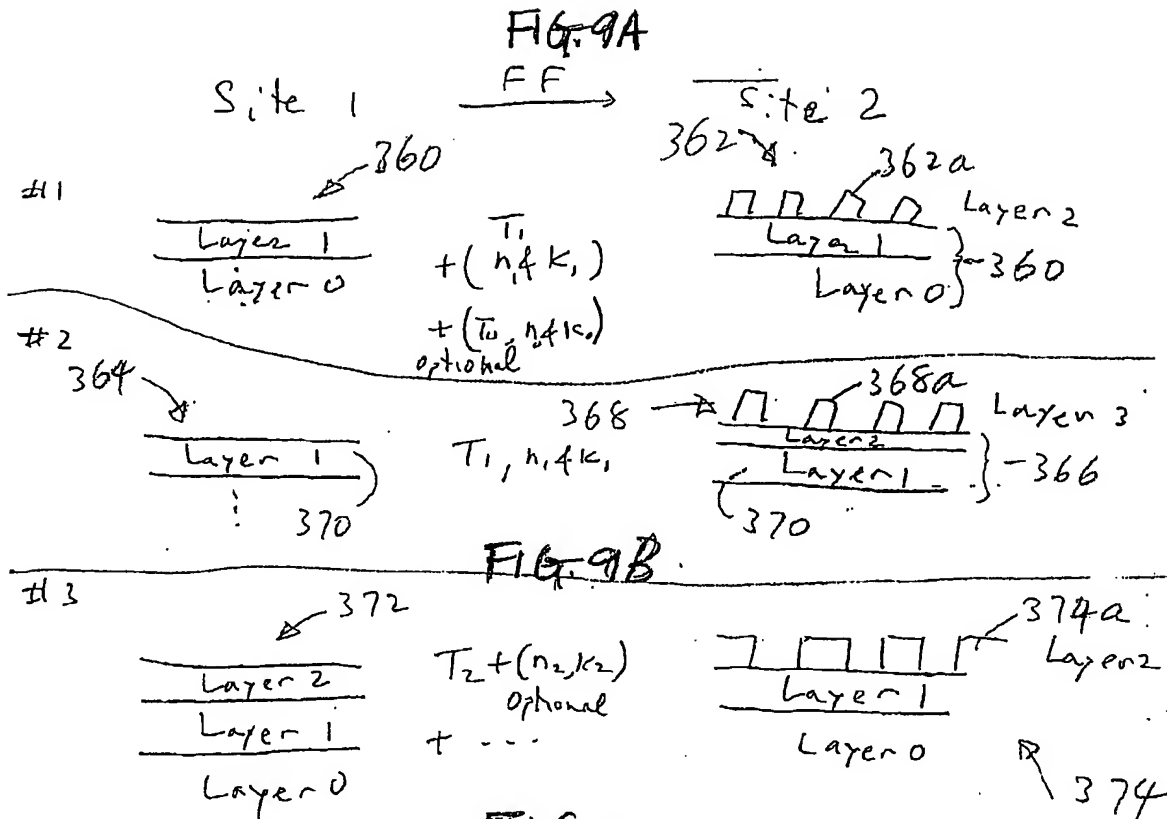 FIG. 9A
Site 1 FF Site 2
#1
360
Layer 1
Layer 0
T₁
+ (n₁ & k₁)
+ (T₀, n₀ & k₀)
optional
362
362a
Layer 2
Layer 1
Layer 0
360
#2
364
Layer 1
370
T₁, n₁ & k₁
368
368a
Layer 3
Layer 2
Layer 1
366
370
FIG. 9B
#3
372
Layer 2
Layer 1
Layer 0
T₂ + (n₂, k₂)
optional
+ ...
374a
Layer 2
Layer 1
Layer 0
374